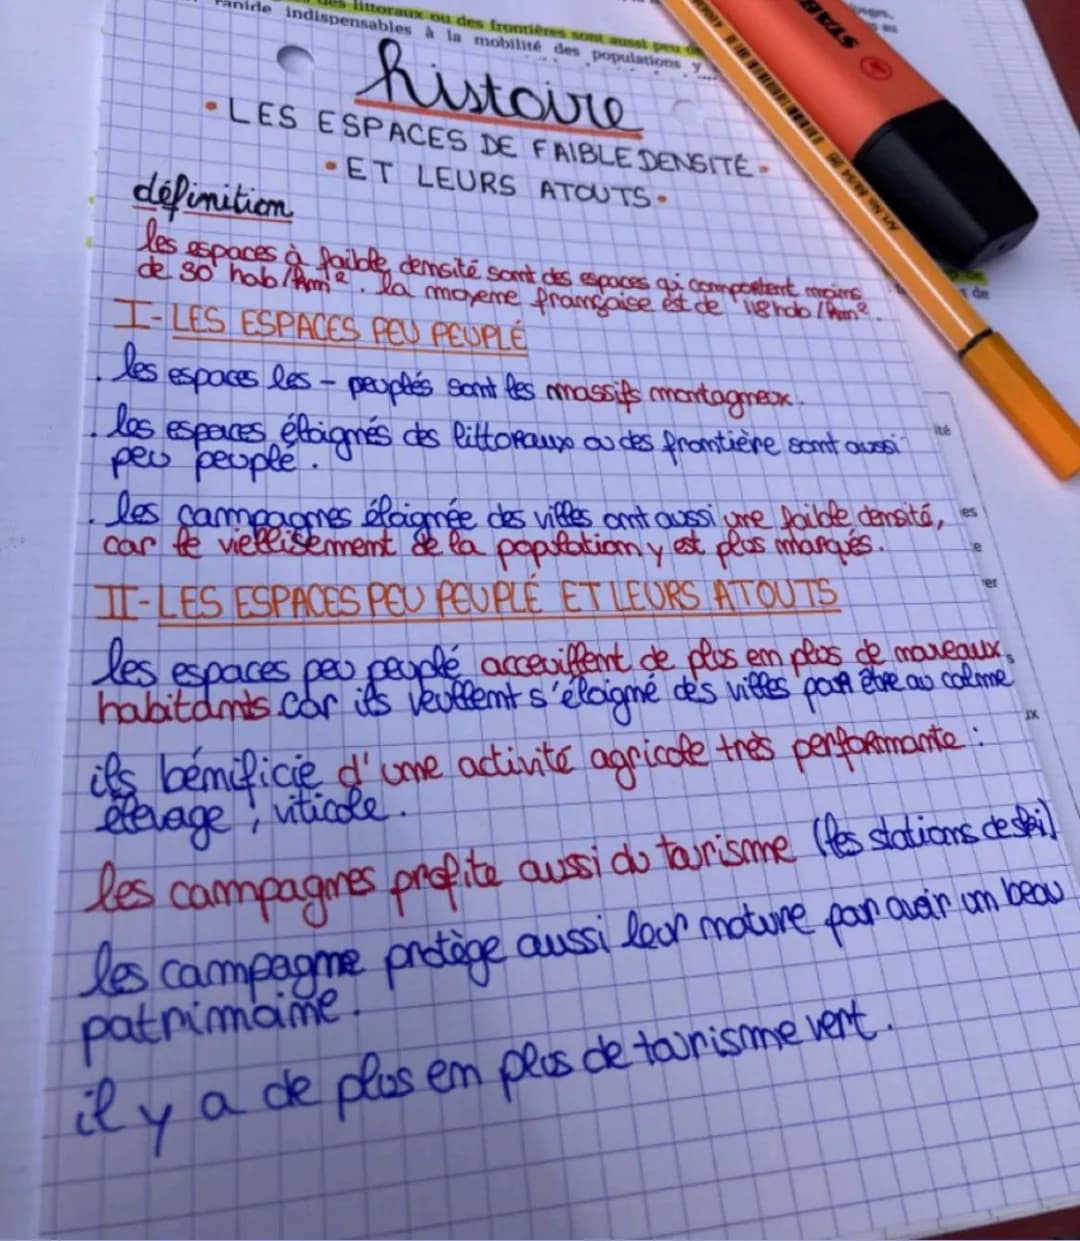 des littoraux ou des frontières sont aussi peu
indispensables à la mobilité des populations y
STAB
Art.No. 88/54
histoire
• LES ESPACES DE FAIBLE DENSITÉ •
• ET LEURS ATOUTS •
définition
les espaces à faible densité sont des espaces qi comportent moins
de 30 hab/km². la moyenne française est de 118 hab/km².
I-LES ESPACES PEU PEUPLÉ
. les espaces les - peuplés sont les massifs montagneux.
. les espaces éloignés des littoraux ou des frontière sont aussi
peu peuplé.
. les campagnes éloignée des villes ont aussi une faible densité,
car le viellisement de la population y est plus marqués.
II-LES ESPACES PEU PEUPLÉ ET LEURS ATOUTS
les espaces peu peuplé acceuillent de plus en plus de nouveaux
habitants car ils veullent s'éloigné des villes pour être au calme
ils bénificie d'une activité agricole très performante :
élevage, viticole.
les campagnes profite aussi du tourisme (les stations de ski)
les campagne protège aussi leur nature pour avoir un beau
patrimoine.
il y a de plus en plus de tourisme vert.